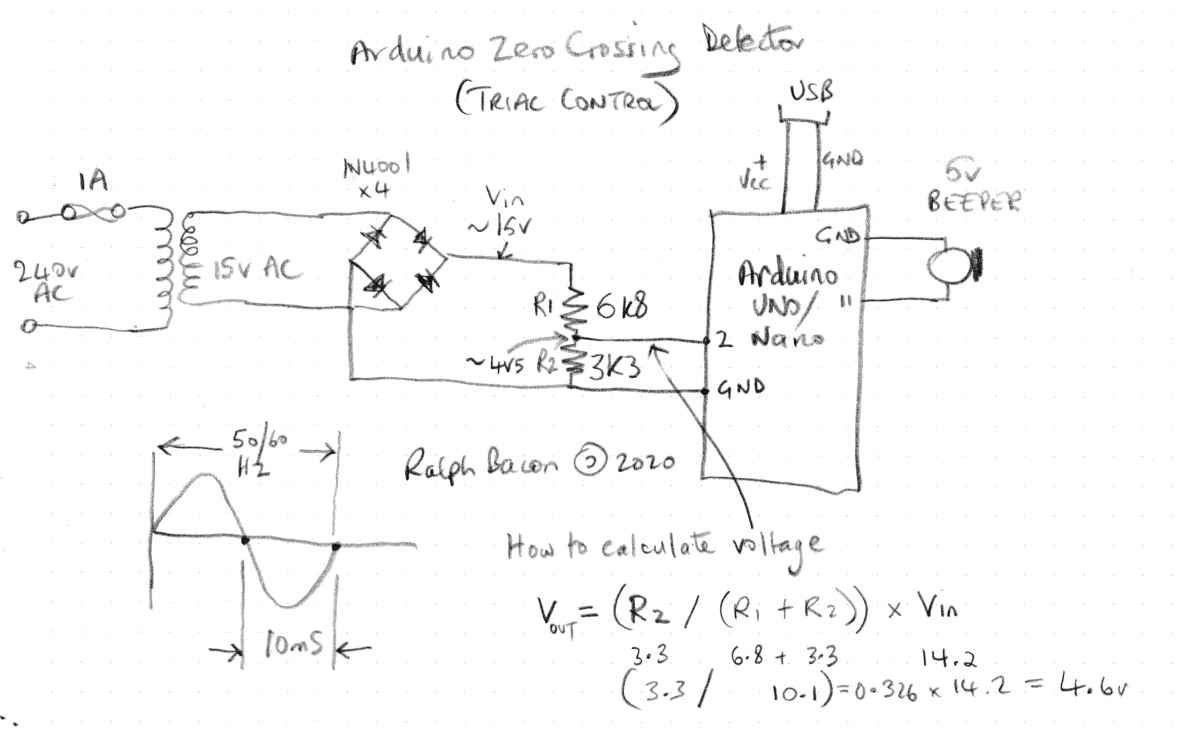 Arduino Zero Crossing Detector
(TRIAC CONTROL)
USB
+
Vcc
GND
5v
BEEPER
1A
IN4001
x4
Vin
~15v
240v
AC
15V AC
R1 6K8
~4V5 R2 3K3
GND
Arduino
UNO/
Nano
11
2
GND
50/60
HZ
10mS
Ralph Bacon © 2020
How to calculate voltage
VOUT = (R2 / (R1 + R2)) x Vin
3.3 6.8 + 3.3 14.2
(3.3 / 10.1) = 0.326 x 14.2 = 4.6v